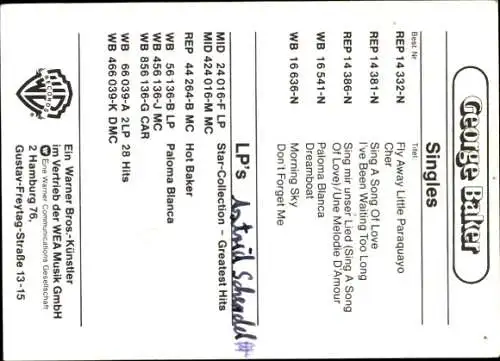 George Baker
Singles
Best. Nr. Titel:
REP 14 332-N Fly Away Little Paraquayo
Cher
REP 14 381-N Sing A Song Of Love
I've Been Waiting Too Long
REP 14 386-N Sing mir unser Lied (Sing A Song
Of Love)/Une Melodie D'Amour
WB 16 541-N Paloma Blanca
Dreamboat
WB 16 636-N Morning Sky
Don't Forget Me
LP's
MID 24 016-F LP Star-Collection – Greatest Hits
MID 424 016-M MC
REP 44 264-B MC Hot Baker
WB 56 136-B LP Paloma Blanca
WB 456 136-J MC
WB 856 136-G CAR
WB 66 039-A 2LP 28 Hits
WB 466 039-K DMC
Astrid Schendel
WB
RECORDS
Ein Warner Bros.-Künstler
im Vertrieb der WEA Musik GmbH
Eine Warner Communications Gesellschaft
2 Hamburg 76,
Gustav-Freytag-Straße 13-15